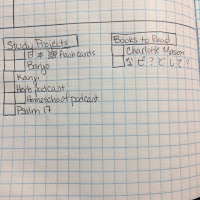 Study Projects
日本語 flashcards
Banjo
Kanji
Herb podcast
Homeschool podcast
Psalm 17
Books to Read
Charlotte Mason
なぜ？どして？